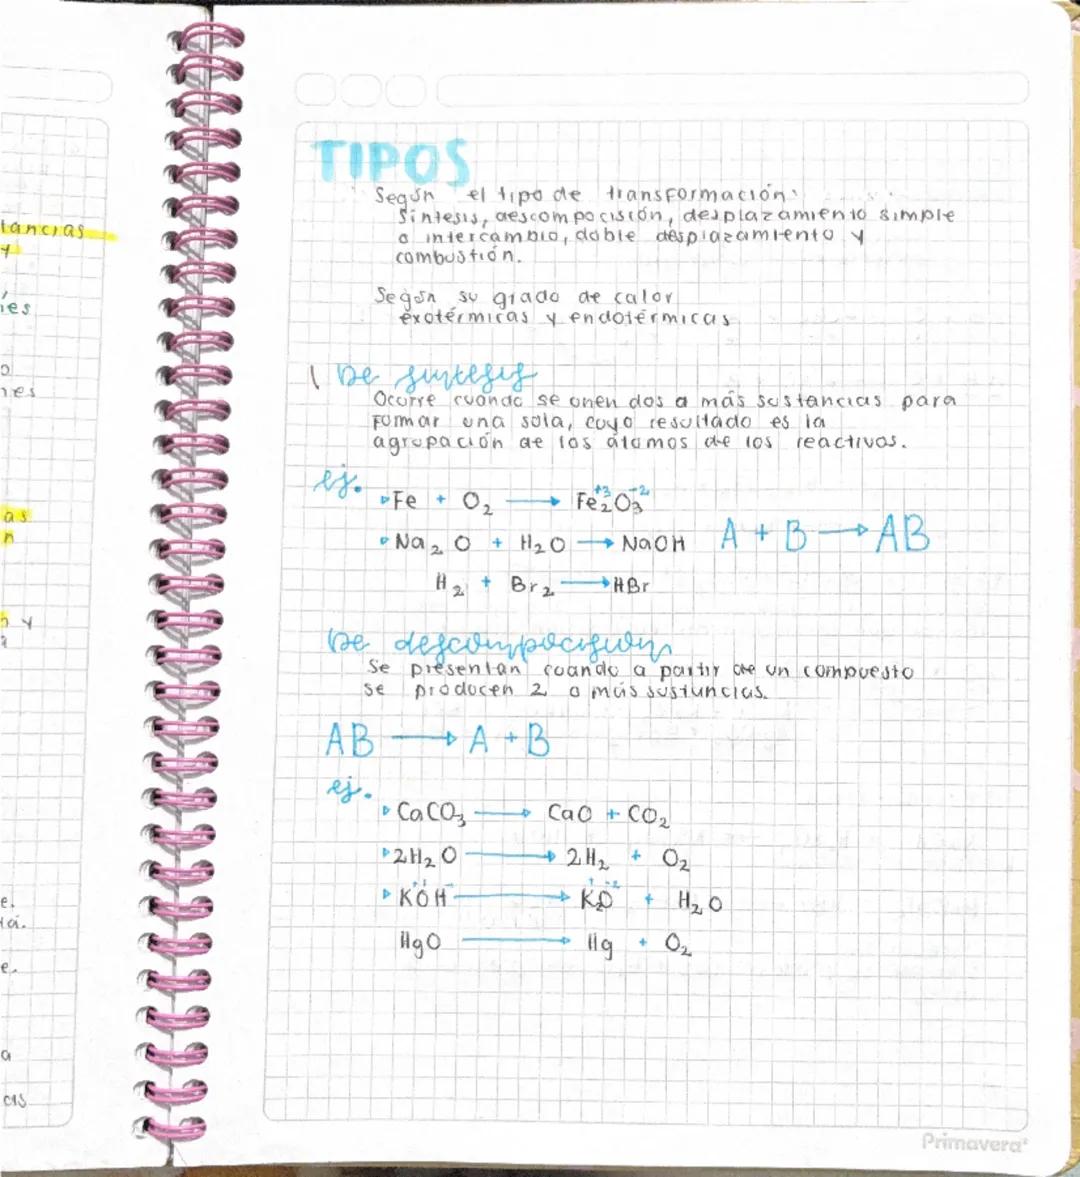 tancias
y
es
o
nes
as
n
y
e.
e.
a
cis
TIPOS
Según el tipo de transformación:
Síntesis, descompocisión, desplazamiento simple
o intercambio, doble desplazamiento y
combustión.
Según su grado de calor
exotérmicas y endotérmicas
1 De sintesis
Ocurre cuando se unen dos o más sustancias para
formar una sola, cuyo resultado es la
agrupación de los átomos de los reactivos.
ej.
▹Fe + O₂ → Fe₂⁺³O₃⁻²
•Na₂O + H₂O → NaOH A + B → AB
H₂ + Br₂ → HBr
De descompocision
Se presentan cuando a partir de un compuesto
se producen 2 o más sustancias.
AB → A + B
ej.
▹CaCO₃ → CaO + CO₂
▹2H₂O → 2H₂ + O₂
▹K⁺¹OH⁻ → K₂⁺¹O⁻² + H₂O
HgO → Hg + O₂
Primavera